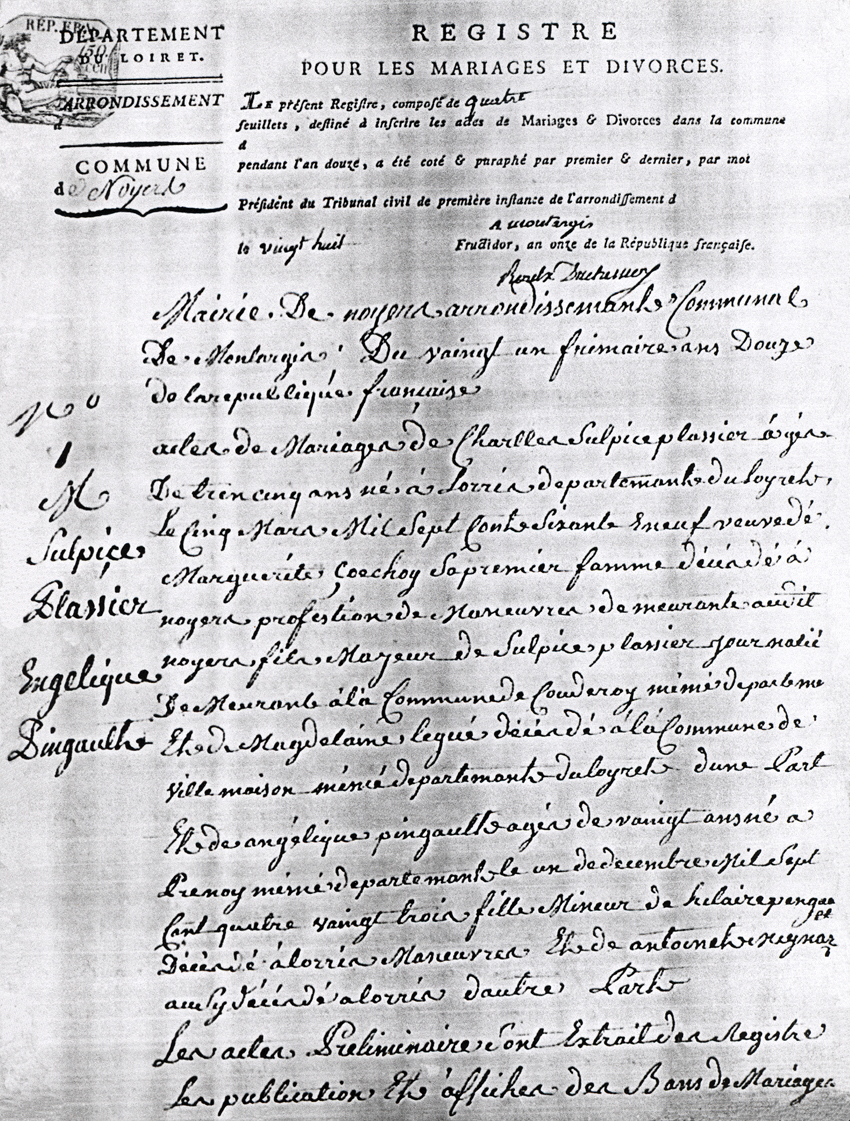 RÉP. FRA
150
cen
DÉPARTEMENT
DU LOIRET.
ARRONDISSEMENT
d
COMMUNE
de Noyers
REGISTRE
POUR LES MARIAGES ET DIVORCES.
LE préfent Regiftre, compofé de quatre
feuillets, deftiné à infcrire les actes de Mariages & Divorces dans la commune
d
pendant l'an douze, a été coté & paraphé par premier & dernier, par mot
Préfident du Tribunal civil de première inftance de l'arrondiffement d
A montargis
le vingt huit Fructidor, an onze de la République françaife.
Mairie De noyers arrondissemante Communal
De Montargis. Du vaingt un frimaire ans Douze
de la republique française
No
1
M
Sulpice
Plassier
Engelique
Pingaulte
actes de Mariages de Charlles Sulpice plassier âgés
De trencinq ans né à Lorris departemante du loyrete,
Le Cinq Mars Mil Sept Cente Sixante Eneuf veuve dé
Marguérite sa premier famme décédé à
noyers profestion de Maneuvres demeurante audit
noyers fils Mageur de Sulpice plassier journalié
De Meurante à la Commune de Couderoy mémé departeme
Ete de Magdelaine legué décédé à la Commune de
ville maison mémé departemante du loyrete dune Part
Ete de angélique pingaulte agés de vaingt ans né a
Prenoy mémé departemante le un de decembre Mil Sept
Cent quatre vaingt trois fille Mineur de hilaire pengau
Décédé à lorris Maneuvres Ete de antoinete
ausy décédé a lorris dautre Parte
Les actes Preliminaire sont Extrait des Registre
Les publication Ete affiches des Bans de Mariages